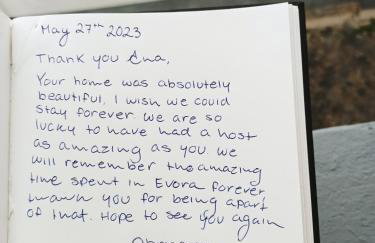 May 27th 2023
Thank you Ena,
Your home was absolutely
beautiful. I wish we could
stay forever. we are so
lucky to have had a host
as amazing as you. we
will remember the amazing
time spent in Evora forever
thank you for being apart
of that. Hope to see you again